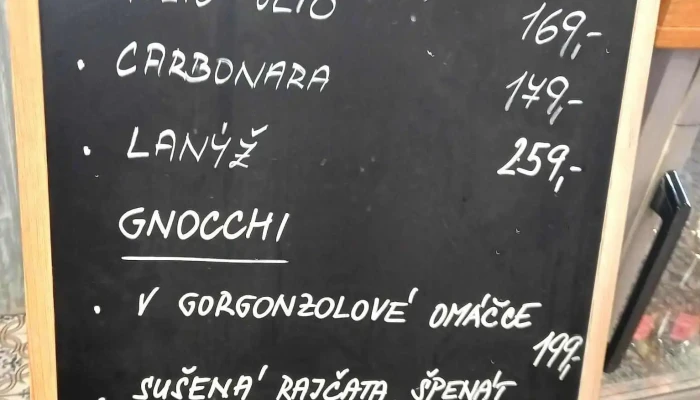 169,-
• CARBONARA 179,-
• LANÝŽ 259,-
GNOCCHI
• V GORGONZOLOVÉ OMÁČCE
199,-
• SUŠENÁ RAJČATA ŠPENÁT